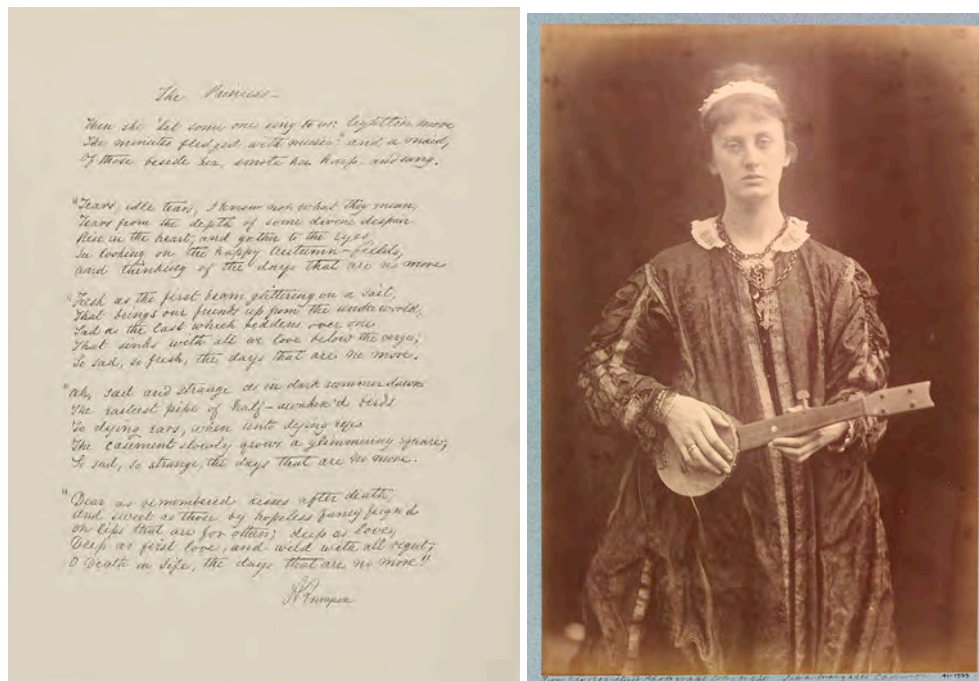 The Princess —
Then she "let some one sing to us: lightlier move
The minutes fledged with music:" and a maid,
Of those beside her, smote her harp, and sang.
"Tears, idle tears, I know not what they mean,
Tears from the depth of some divine despair
Rise in the heart, and gather to the eyes,
In looking on the happy Autumn-fields,
And thinking of the days that are no more.
"Fresh as the first beam glittering on a sail,
That brings our friends up from the underworld,
Sad as the last which reddens over one
That sinks with all we love below the verge;
So sad, so fresh, the days that are no more.
"Ah, sad and strange as in dark summer dawns
The earliest pipe of half-awaken'd birds
To dying ears, when unto dying eyes
The casement slowly grows a glimmering square;
So sad, so strange, the days that are no more.
"Dear as remembered kisses after death,
And sweet as those by hopeless fancy feign'd
On lips that are for others; deep as love,
Deep as first love, and wild with all regret;
O Death in Life, the days that are no more."
A Tennyson
From Life Registered Photograph Copy Right Julia Margaret Cameron
41-1939